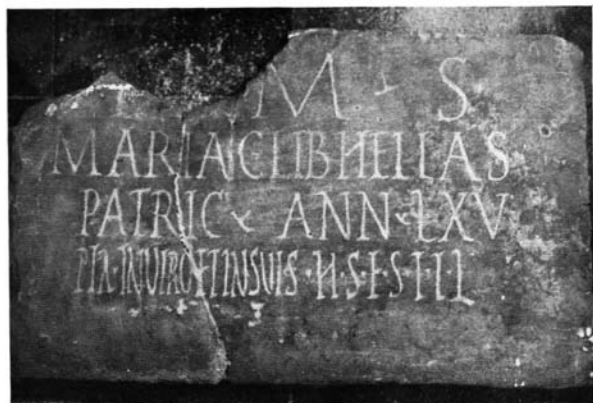 M · S
MARIA C LIB HELLAS
PATRIC · ANN · LXV
PIA · IN VIRO ET IN SVIS · H · S · E · S · T · T · L